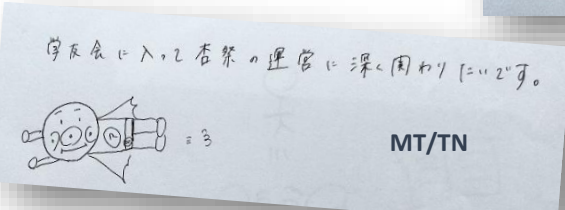 学友会に入って杏祭の運営に深く関わりたいです。
=3
MT/TN